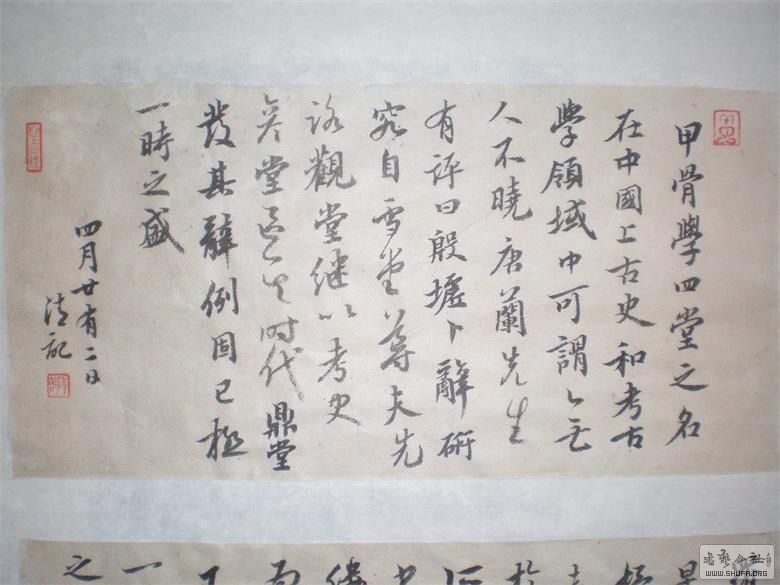 甲骨學四堂之名
在中國上古史和考古
學領域中可謂无
人不曉唐蘭先生
有評曰殷墟卜辭研
究自雪堂導夫先
路觀堂继以考史
彦堂區其时代鼎堂
發其辭例固已極
一時之盛
四月廿有二日
记
一
之
书艺公社
WWW.SHUFA.ORG